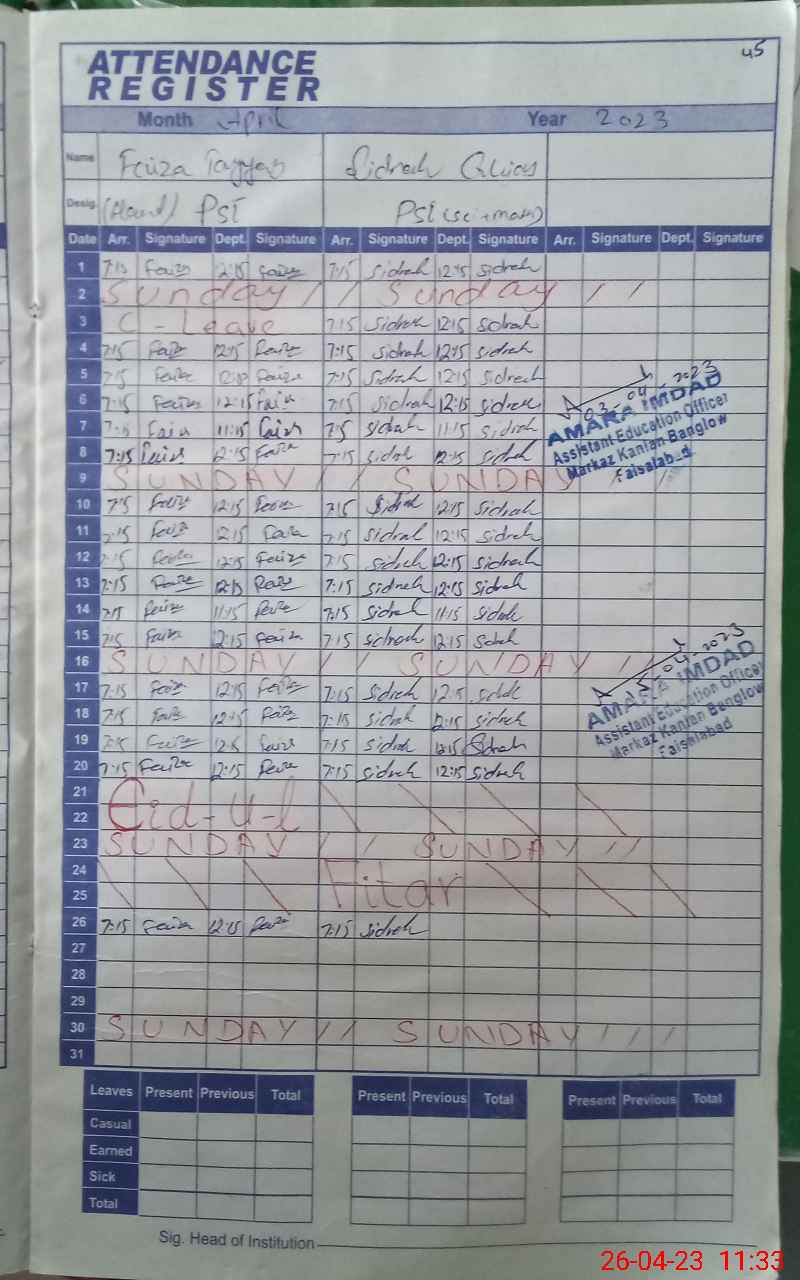 45
ATTENDANCE
REGISTER
Month April Year 2023
Name Faiza Sidrah
Desig. PST PST (sc + math)
Date Arr. Signature Dept. Signature Arr. Signature Dept. Signature Arr. Signature Dept. Signature
1 7:15 Faiza 12:15 Faiza 7:15 Sidrah 12:15 Sidrah
2 Sunday // Sunday //
3 C - Leave 7:15 Sidrah 12:15 Sidrah
4 7:15 Faiza 12:15 Faiza 7:15 Sidrah 12:15 Sidrah
5 7:15 Faiza Faiza 7:15 Sidrah 12:15 Sidrah
6 7:15 Faiza 12:15 Faiza 7:15 Sidrah 12:15 Sidrah
7 7:15 Faiza 11:15 Faiza 7:15 Sidrah 11:15 Sidrah
8 7:15 Faiza 12:15 Faiza 7:15 Sidrah 12:15 Sidrah
03-04-2023
AMARA IMDAD
Assistant Education Officer
Markaz Kanian Banglow
Faisalabad
9 SUNDAY // SUNDAY //
10 7:15 Faiza 12:15 Faiza 7:15 Sidrah 12:15 Sidrah
11 7:15 Faiza 12:15 Faiza 7:15 Sidrah 12:15 Sidrah
12 7:15 Faiza 12:15 Faiza 7:15 Sidrah 12:15 Sidrah
13 7:15 Faiza 12:15 Faiza 7:15 Sidrah 12:15 Sidrah
14 7:15 Faiza 11:15 Faiza 7:15 Sidrah 11:15 Sidrah
15 7:15 Faiza 12:15 Faiza 7:15 Sidrah 12:15 Sidrah
16 SUNDAY // SUNDAY //
17 7:15 Faiza 12:15 Faiza 7:15 Sidrah 12:15 Sidrah
18 7:15 Faiza 12:15 Faiza 7:15 Sidrah 12:15 Sidrah
19 7:15 Faiza 12:15 Faiza 7:15 Sidrah 12:15 Sidrah
20 7:15 Faiza 12:15 Faiza 7:15 Sidrah 12:15 Sidrah
04-2023
AMARA IMDAD
Assistant Education Officer
Markaz Kanian Banglow
Faisalabad
21
22 Eid-u-l
23 SUNDAY // SUNDAY //
24
25 Fitar
26 7:15 Faiza 12:15 Faiza 7:15 Sidrah
27
28
29
30 SUNDAY // SUNDAY ///
31
Leaves Present Previous Total Present Previous Total Present Previous Total
Casual
Earned
Sick
Total
Sig. Head of Institution
26-04-23 11:33